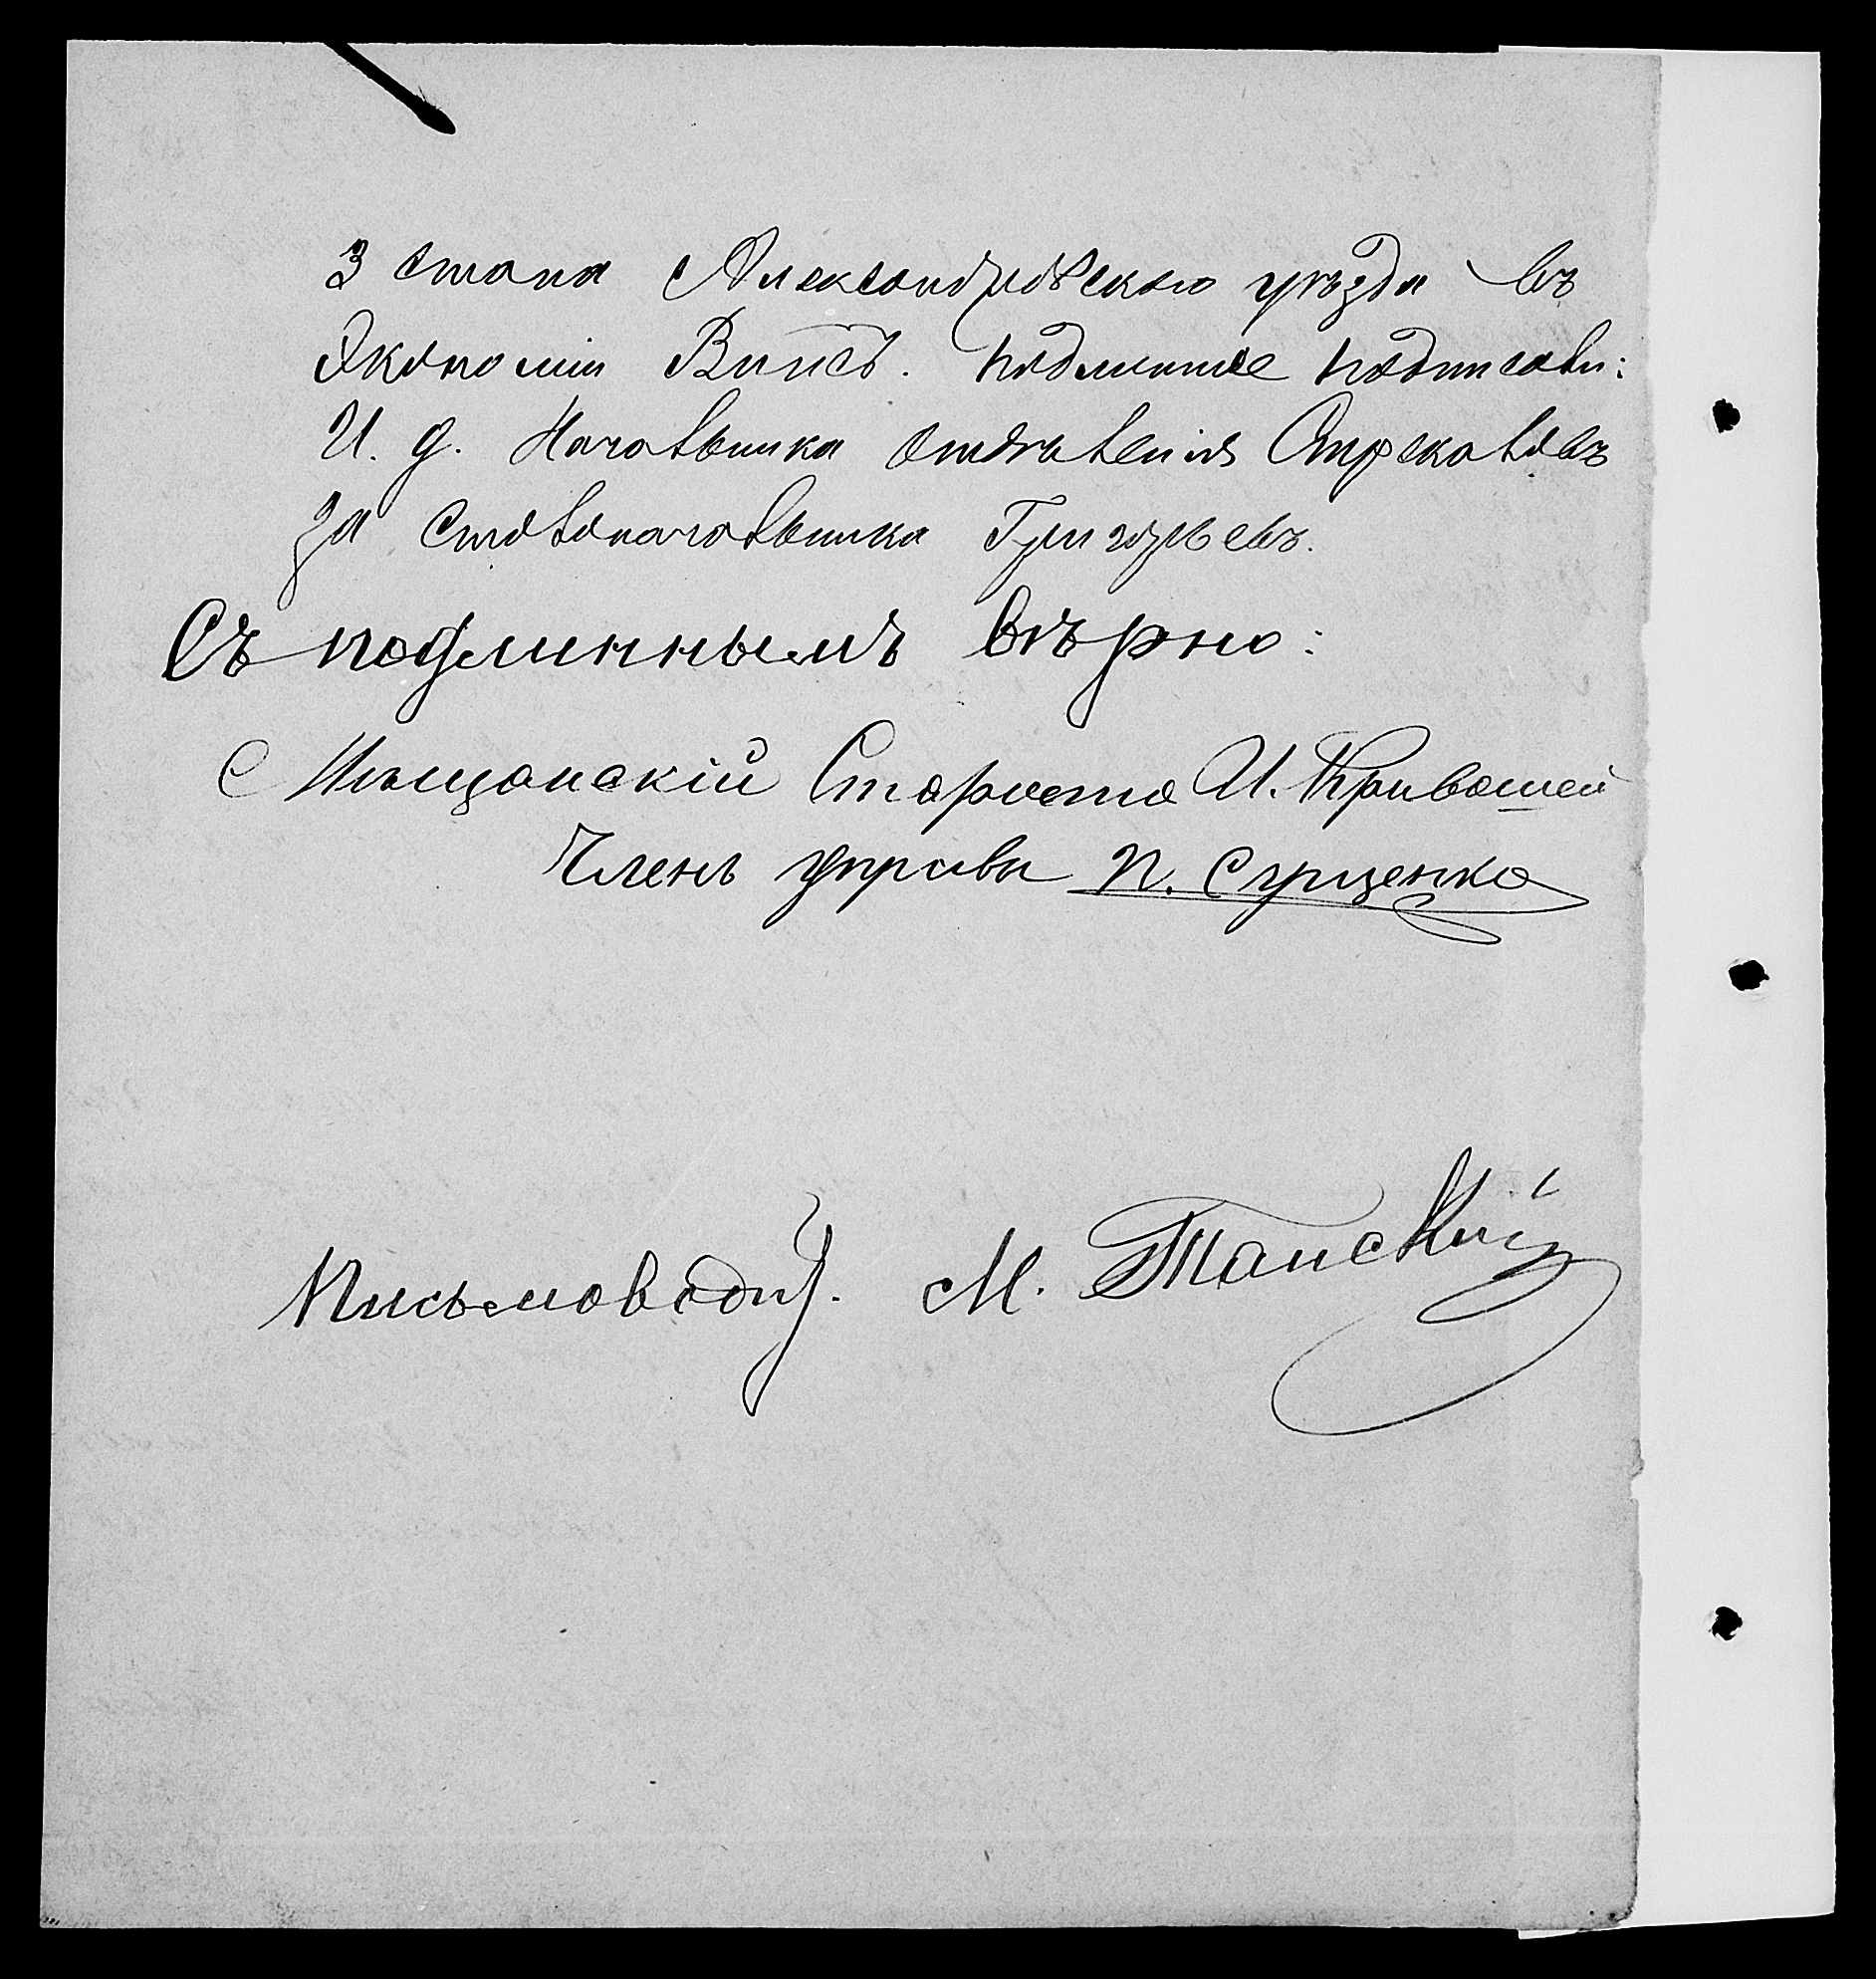 3 стана Александровскаго уѣзда въ
Экономіи Винсъ. Подлинное подписали:
И. д. Начальника отдѣленія Стрекаловъ
за столоначальника Григорьевъ.
Съ подлиннымъ вѣрно:
Мѣщанскій Староста И. Кривошей
Членъ управы П. Сущенко
Письмоводит. М. Танскій